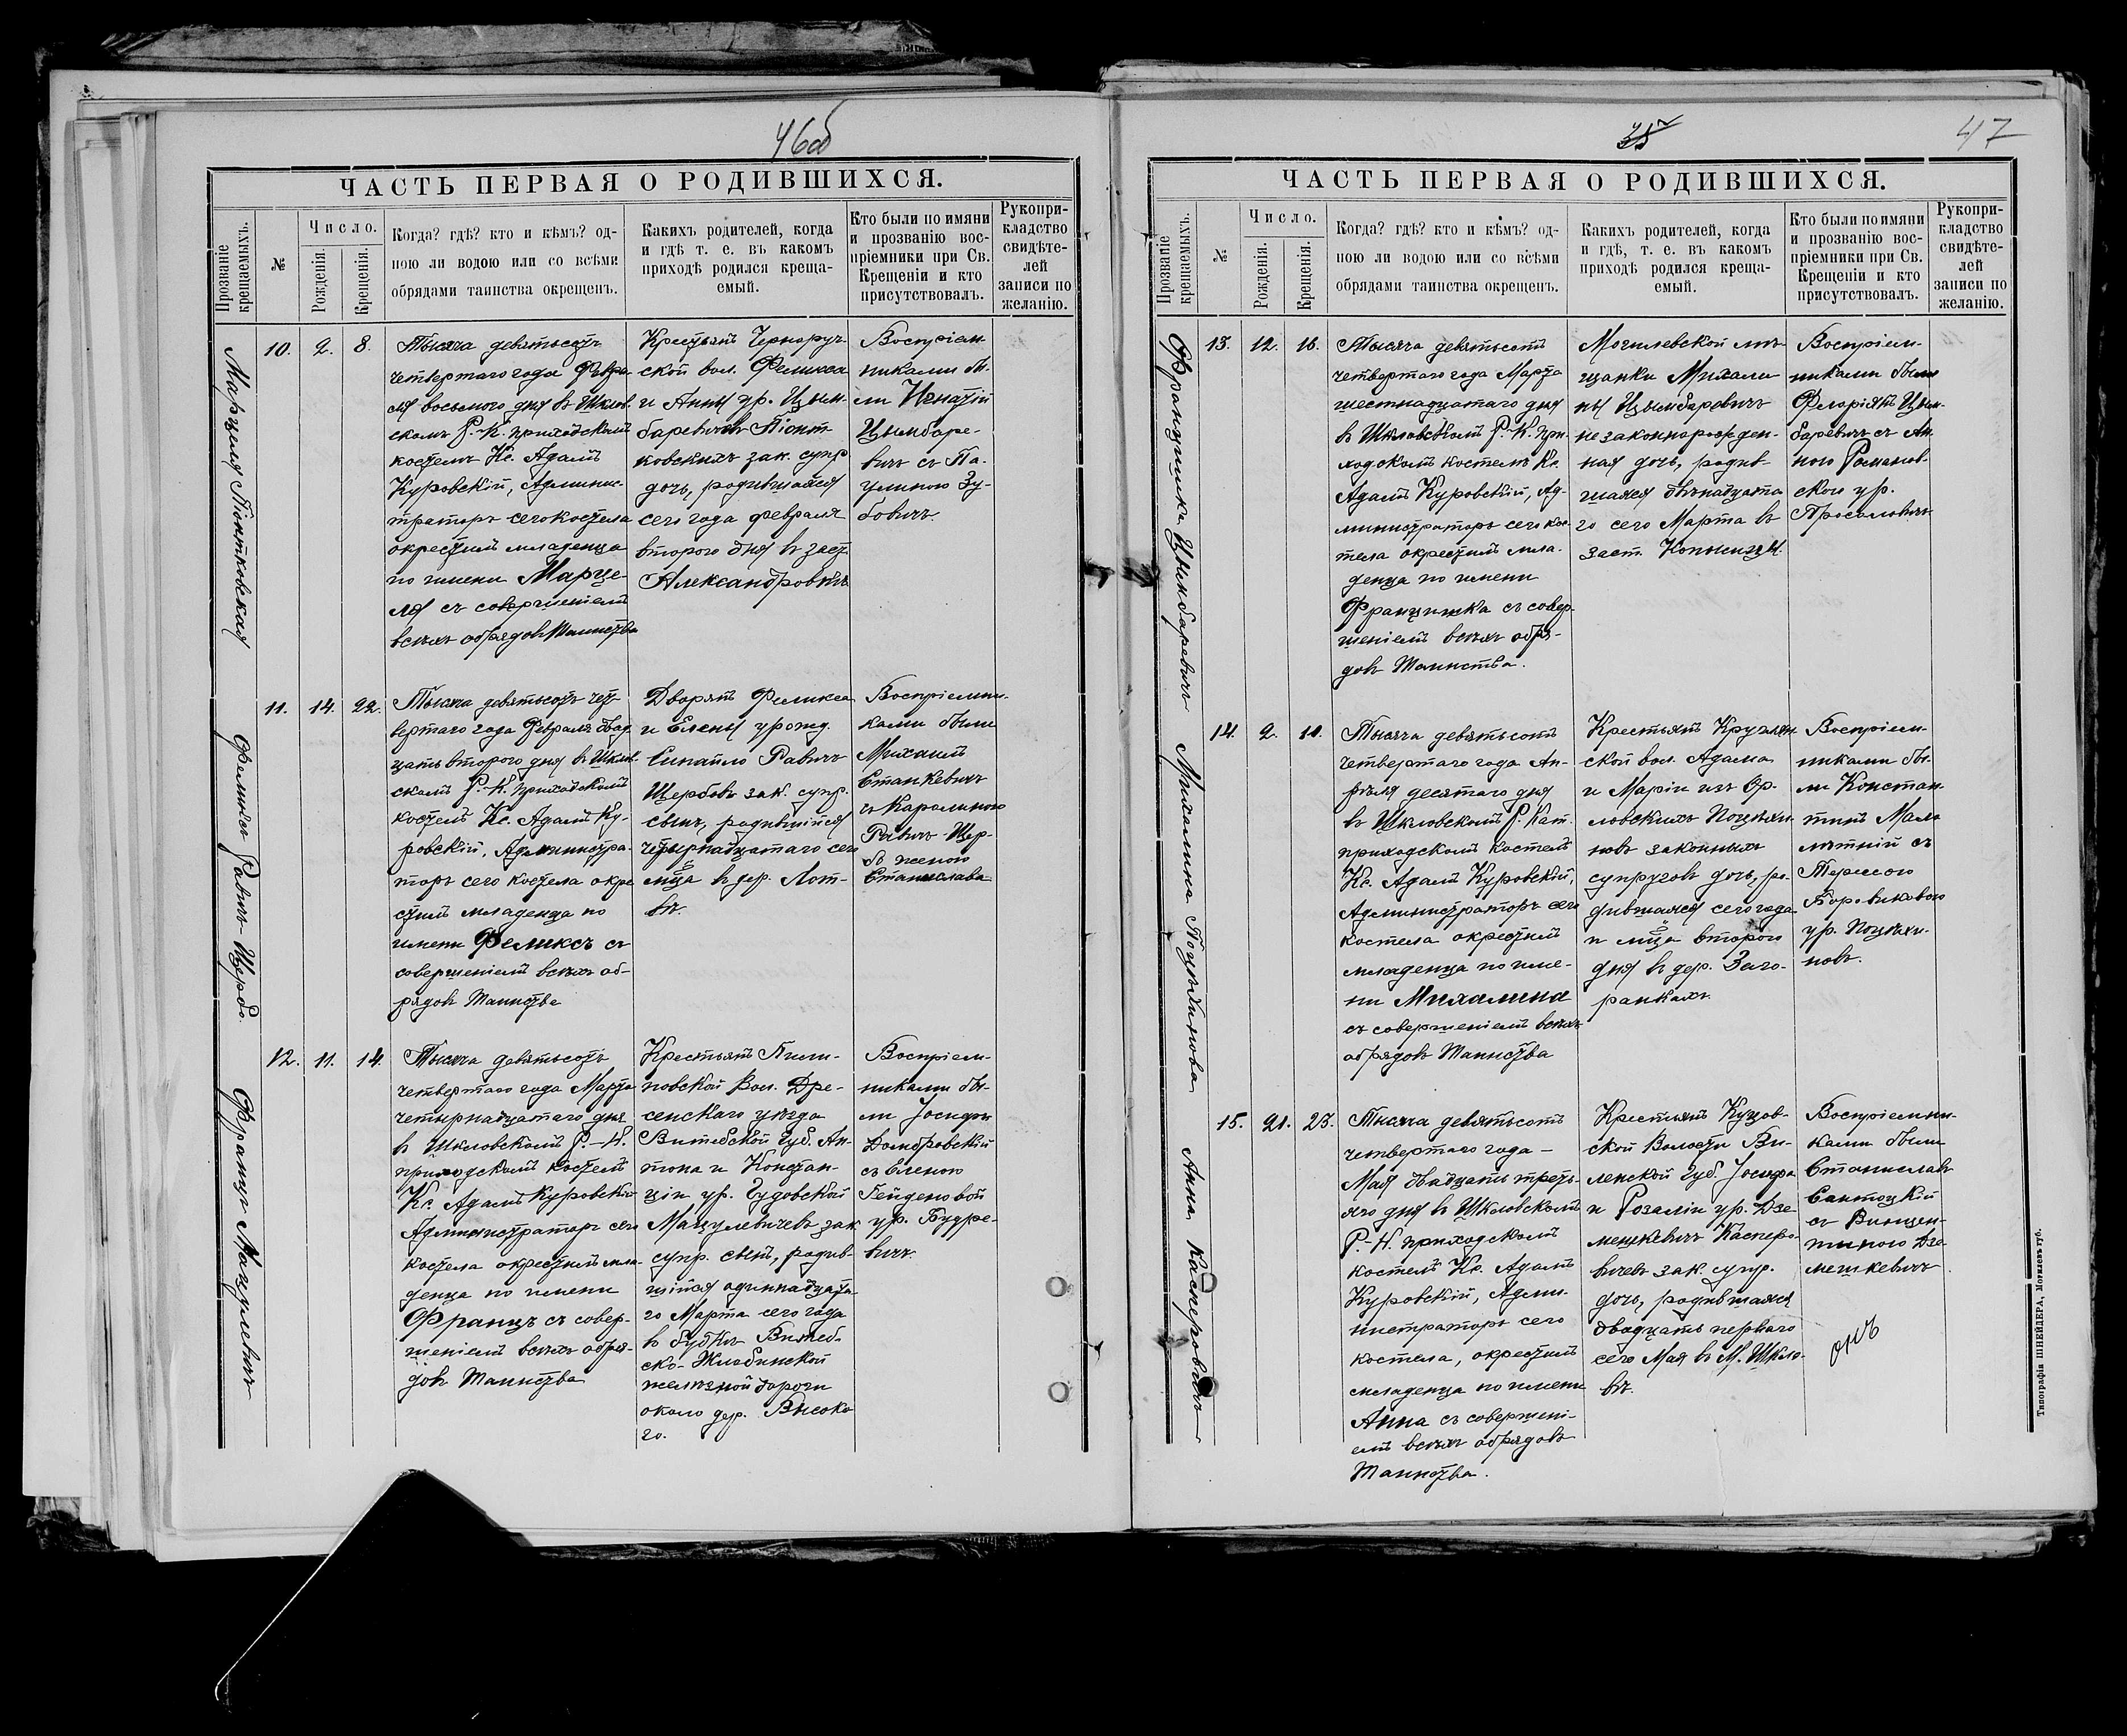 46об
ЧАСТЬ ПЕРВАЯ О РОДИВШИХСЯ.
Прозваніе
крещаемыхъ.
№
Число.
Рожденія.
Крещенія.
Когда? гдѣ? кто и кѣмъ? од-
ною ли водою или со всѣми
обрядами таинства окрещенъ.
Какихъ родителей, когда
и гдѣ т. е. въ какомъ
приходѣ родился креща-
емый.
Кто были по имяни
и прозванію вос-
пріемники при Св.
Крещеніи и кто
присутствовалъ.
Рукопри-
кладство
свидѣте-
лей
записи по
желанію.
Марцеля Піонтковская
10.
2.
8.
Тысяча девятьсотъ
четвертаго года Февра-
ля восьмого дня въ Шклов-
скомъ Р.-К. приходскомъ
костелѣ Кс. Адамъ
Куровскій, Админис-
траторъ сего костела
окрестилъ младенца
по имени Марце-
ля съ совершеніемъ
всѣхъ обрядовъ Таинства
Крестьянъ Чернору-
ской вол. Феликса
и Анны ур. Цым-
баревичъ Піонт-
ковскихъ зак. супр
дочь, родившаяся
сего года февраля
второго дня въ заст
Александровкѣ
Воспріем-
никами бы-
ли Игнатій
Цымбаре-
вичъ съ Па-
улиною Зу-
бовичъ.
Феликсъ Равичъ-Щербо.
11.
14.
22.
Тысяча девятьсотъ чет
вертаго года Февраля двад
цать второго дня въ Шклов-
скомъ Р.-К. приходскомъ
костелѣ Кс. Адамъ Ку-
ровскій, Администра-
торъ сего костела окре
стилъ младенца по
имени Феликсъ съ
совершеніемъ всѣхъ об-
рядовъ Таинства
Дворянъ Феликса
и Елены урожд.
Равичъ
Щербовъ зак. супр.
сынъ, родившійся
четырнадцатаго сего
мѣца въ дер. Лот-
вѣ.
Воспріемни-
ками были
Михаилъ
Станкевичъ
съ Каролиною
Равичъ-Щер-
б женою
Станислава
Францъ Мацулевичъ
12.
11.
14.
Тысяча девятьсотъ
четвертаго года Марта
четырнадцатаго дня
въ Шкловскомъ Р.-К.
приходскомъ костелѣ
Кс. Адамъ Куровскій
Администраторъ сего
костела окрестилъ мла-
денца по имени
Францъ съ совер-
шеніемъ всѣхъ обря-
довъ Таинства
Крестьянъ Пили-
новской Вол. Дри-
сенскаго уѣзда
Витебской губ. Ан-
тона и Констан-
ціи ур. Гудовской
Мацулевичевъ зак
супр. сынъ, родив-
шійся одиннадцата-
го Марта сего года
въ будкѣ Витеб-
ско-Жлобинской
желѣзной дороги
около дер. Высоко
го.
Воспріем-
никами бы-
ли Іосифъ
Домбровскій
съ Еленою
Гейденовой
ур. Будре-
вичъ.
47
ЧАСТЬ ПЕРВАЯ О РОДИВШИХСЯ.
Прозваніе
крещаемыхъ.
№
Число.
Рожденія.
Крещенія.
Когда? гдѣ? кто и кѣмъ? од-
ною ли водою или со всѣми
обрядами таинства окрещенъ.
Какихъ родителей, когда
и гдѣ, т. е. въ какомъ
приходѣ родился креща-
емый.
Кто были по имяни
и прозванію вос-
пріемники при Св.
Крещеніи и кто
присутствовалъ.
Рукопри-
кладство
свидѣте-
лей
записи по
желанію.
Францишка Цымбаревичъ
13.
12.
16.
Тысяча девятьсотъ
четвертаго года Марта
шестнадцатаго дня
въ Шкловскомъ Р.-К. при-
ходскомъ костелѣ Кс.
Адамъ Куровскій, Ад-
министраторъ сего кос-
тела окрестилъ мла-
денца по имени
Францишка съ совер-
шеніемъ всѣхъ обря-
довъ Таинства.
Могилевской мѣ-
щанки Михали-
ны Цымбаревичъ
незаконнорожден-
ная дочь, родив-
шаяся двѣнадцата
го сего Марта въ
заст. Копысицы.
Воспріем-
никами были
Флоріянъ Цым-
баревичъ съ Ан-
ною Романов-
скою ур.
Михалина Поцѣхинова
14.
2.
10.
Тысяча девятьсотъ
четвертаго года Ап-
рѣля десятаго дня
въ Шкловскомъ Р. Кат.
приходскомъ костелѣ
Кс. Адамъ Куровскій,
Администраторъ сего
костела окрестилъ
младенца по име-
ни Михалина
съ совершеніемъ всѣхъ
обрядовъ Таинства
Крестьянъ Круглян-
ской вол. Адама
и Маріи изъ Ор-
ловскихъ Поцѣхи-
новъ законныхъ
супруговъ дочь, ро-
дившаяся сего года
и мѣца второго
дня въ дер. Заго-
ранкахъ.
Воспріем-
никами бы-
ли Констан-
тинъ Мало
лѣтній съ
Тересою
Боровиковою
ур. Поцѣхи-
новъ.
Анна Касперовичъ
15.
21.
23.
Тысяча девятьсотъ
четвертаго года –
Мая двадцать треть-
яго дня въ Шкловскомъ
Р.-К. приходскомъ
костелѣ Кс. Адамъ
Куровскій, Адми-
нистраторъ сего
костела, окрестилъ
младенца по имени
Анна съ совершені-
емъ всѣхъ обрядовъ
Таинства.
Крестьянъ Куцов-
ской Волости Ви-
ленской губ. Іосифа
и Розаліи ур. Дзе-
мешкевичъ Касперо-
вичевъ зак. супр.
дочь, родившаяся
двадцать перваго
сего Мая въ М. Шкло-
вѣ.
Воспріемни-
ками были
Станиславъ
Сантоцкій
съ Винцен-
тиною Дзе-
мешкевичъ
Типографія ШНЕЙДЕРА, Могилевъ губ.